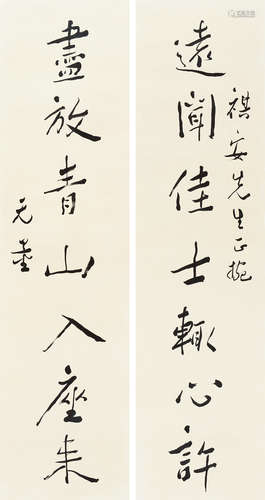 遠聞佳士輒心許
祺安先生正
盡放青山入座来
无量